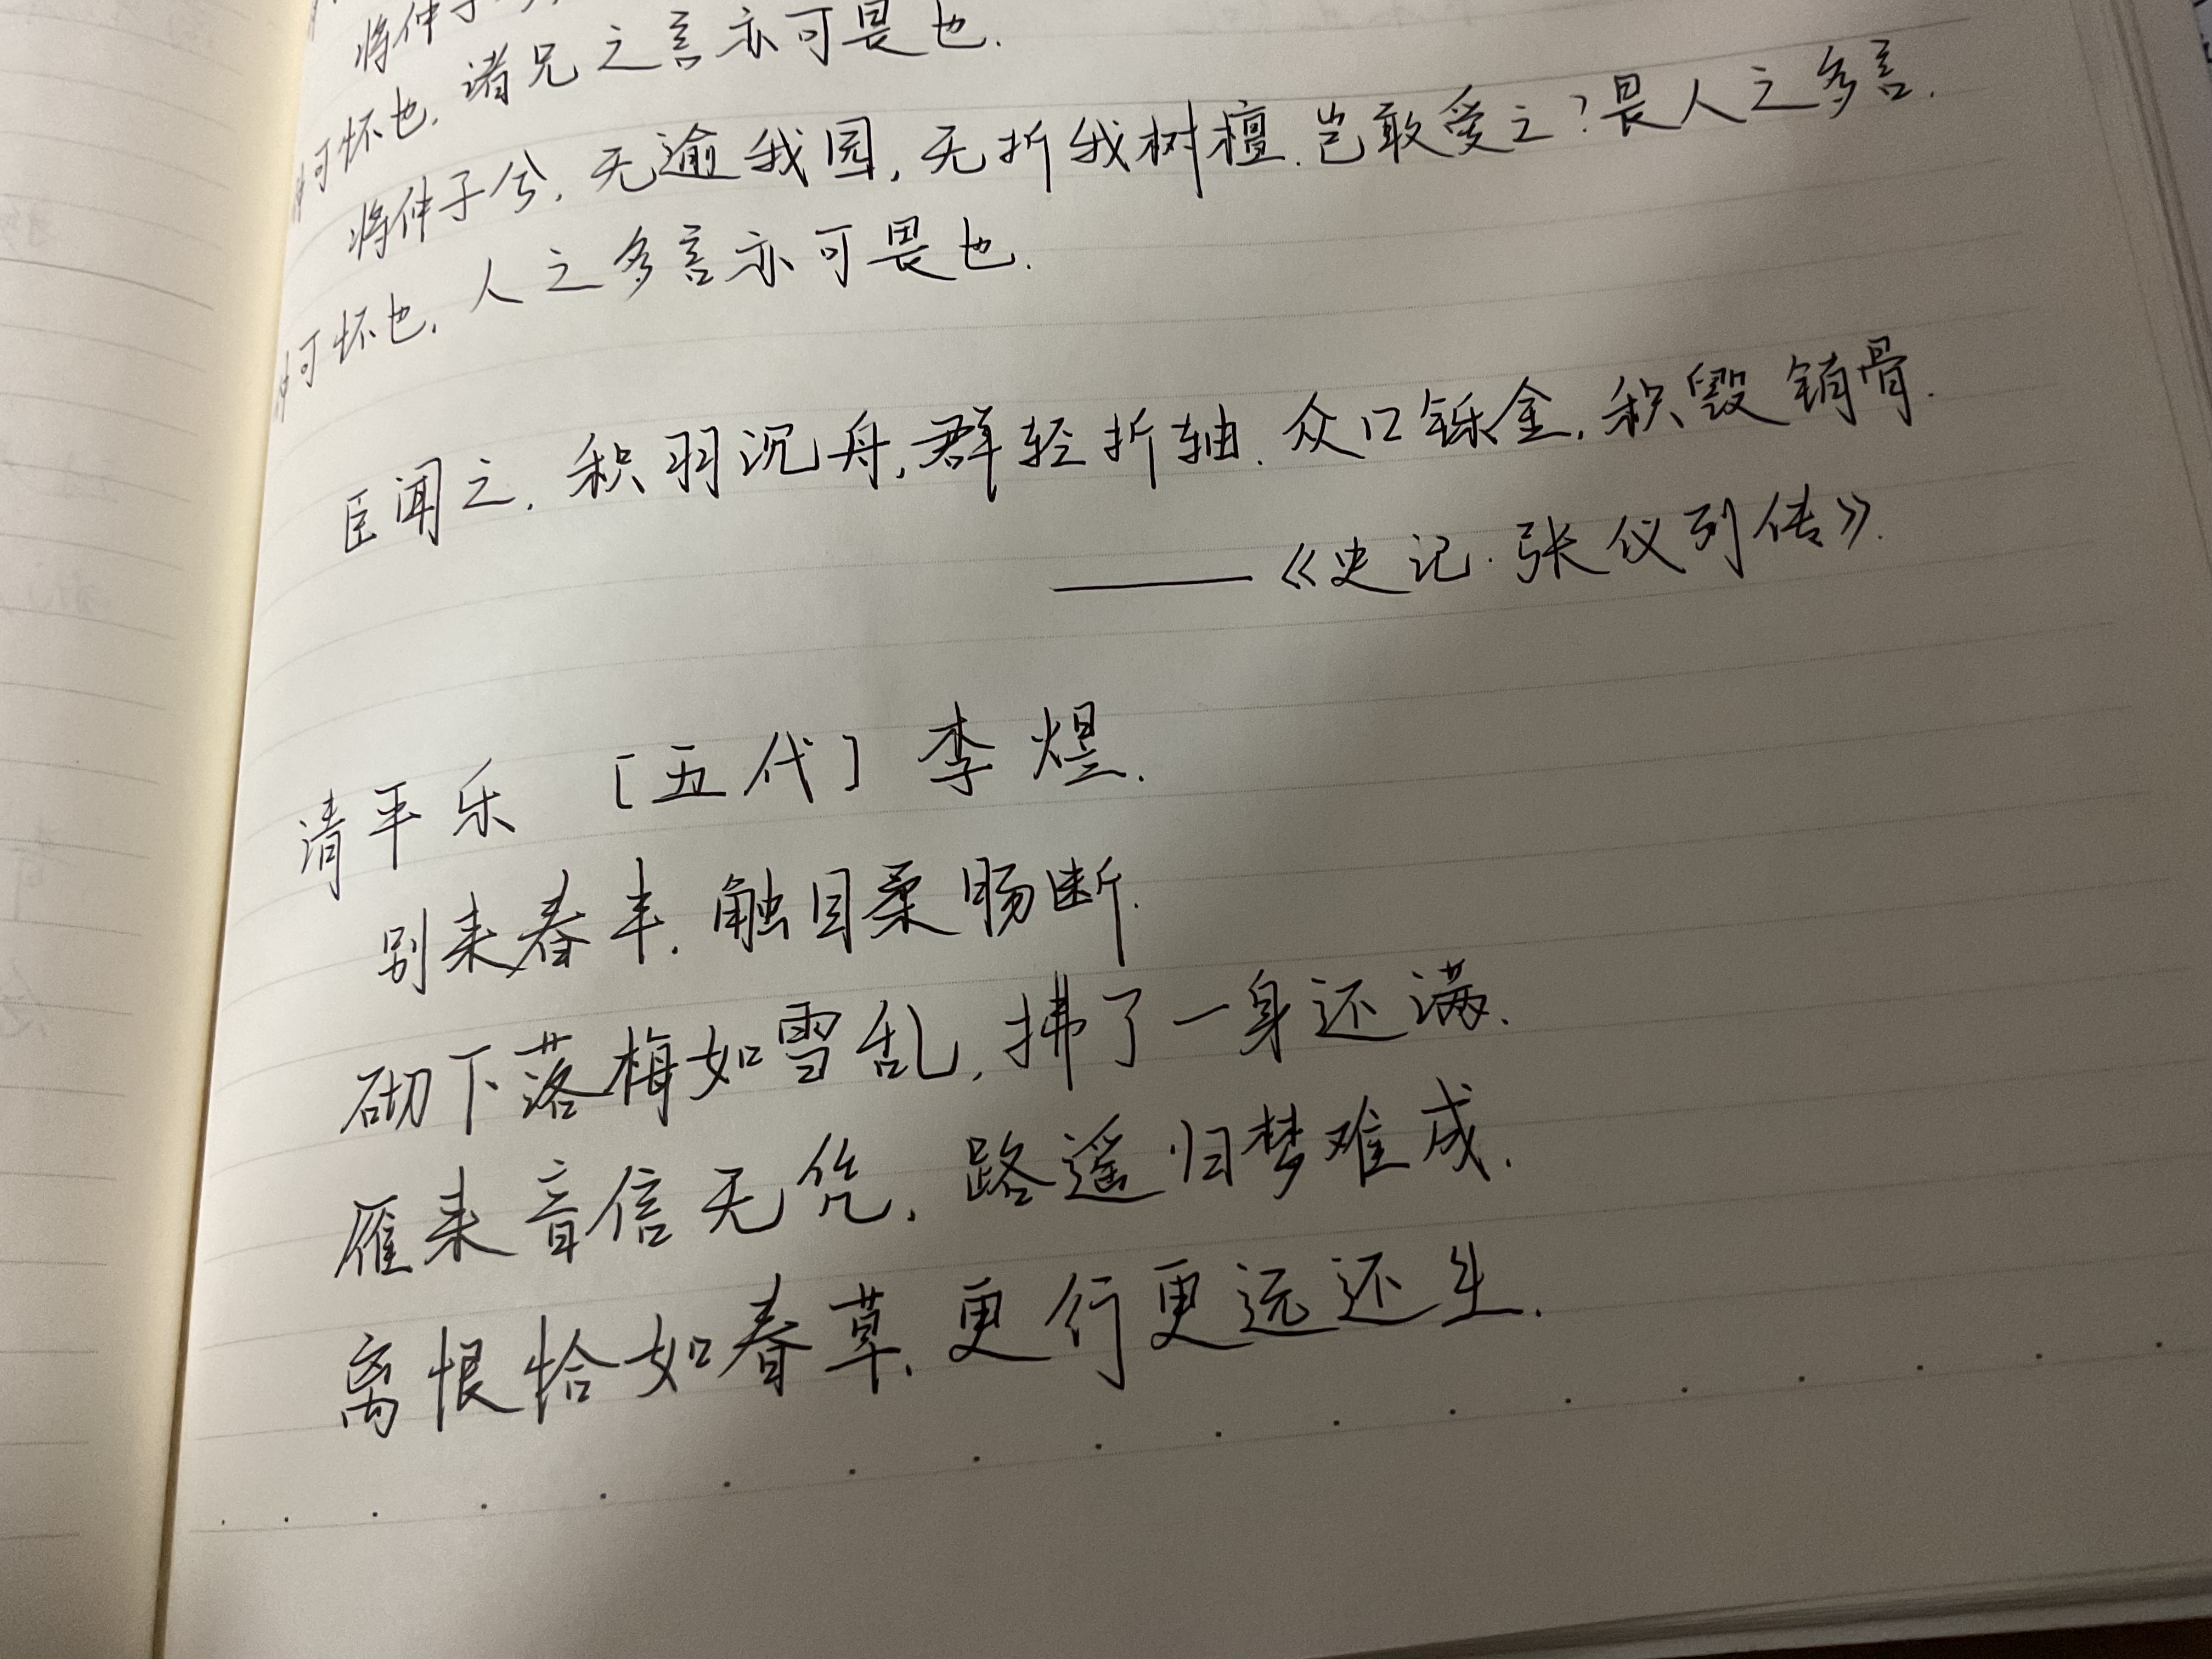 将仲子
可怀也，诸兄之言亦可畏也.
将仲子兮，无逾我园，无折我树檀.岂敢爱之？畏人之多言.
仲可怀也，人之多言亦可畏也.
臣闻之，积羽沉舟，群轻折轴.众口铄金，积毁销骨.
——《史记·张仪列传》.
清平乐 [五代] 李煜.
别来春半，触目柔肠断.
砌下落梅如雪乱，拂了一身还满.
雁来音信无凭，路遥归梦难成.
离恨恰如春草，更行更远还生.